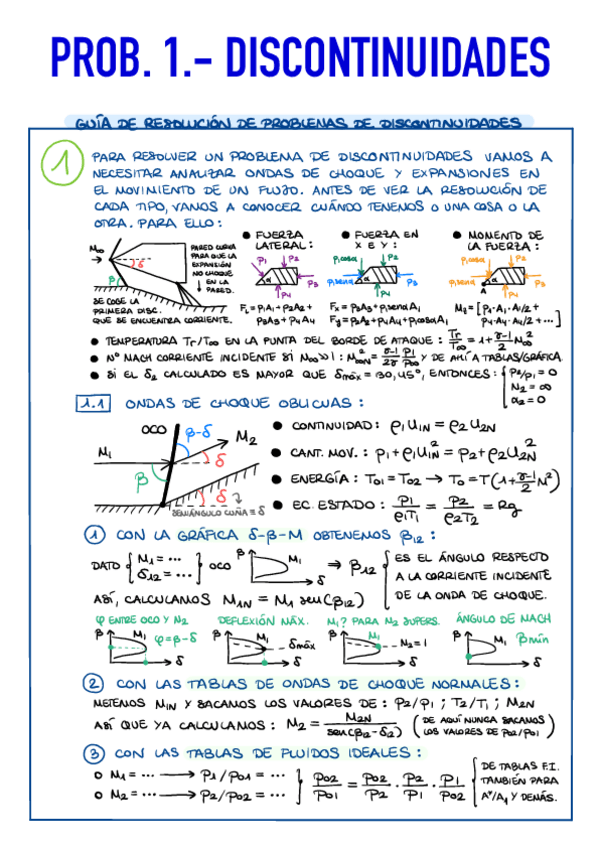 PROB. 1.- DISCONTINUIDADES
GUÍA DE RESOLUCIÓN DE PROBLEMAS DE DISCONTINUIDADES
1 PARA RESOLVER UN PROBLEMA DE DISCONTINUIDADES VAMOS A
NECESITAR ANALIZAR ONDAS DE CHOQUE Y EXPANSIONES EN
EL MOVIMIENTO DE UN FLUJO. ANTES DE VER LA RESOLUCIÓN DE
CADA TIPO, VAMOS A CONOCER CUÁNDO TENEMOS O UNA COSA O LA
OTRA. PARA ELLO:
M∞ δ β
PARED CURVA
PARA QUE LA
EXPANSIÓN
NO CHOQUE
↓ EN LA
PARED.
SE COGE LA
PRIMERA DISC.
QUE SE ENCUENTRA CORRIENTE.
● FUERZA
LATERAL:
P1 P2 P3 P4 α
FL = P1A1 + P2A2 +
P3A3 + P4A4
● FUERZA EN
X E Y:
P1cosα P2 P1senα P3 P4 α
Fx = P3A3 + P1senαA1
Fy = P2A2 + P4A4 + P1cosαA1
● MOMENTO DE
LA FUERZA:
P1cosα P2 P1senα P3 P4 α A
M1 = [P1·A1·A1/2 +
P4·A4·A4/2 + ...]
● TEMPERATURA Tr/T∞ EN LA PUNTA DEL BORDE DE ATAQUE: Tr/T∞ = 1 + (γ-1)/2 M∞²
● Nº MACH CORRIENTE INCIDENTE SI M∞>>1: M∞N² = (γ-1)/2γ P1/P∞ Y DE AHÍ A TABLAS/GRÁFICA.
● SI EL δ2 CALCULADO ES MAYOR QUE δmáx = 130,45°, ENTONCES: { P2/P1 = 0
M2 = ∞
α2 = 0
1.1 ONDAS DE CHOQUE OBLICUAS:
OCO β-δ M2
M1 δ
β δ
SEMIÁNGULO CUÑA = δ
● CONTINUIDAD: ρ1U1N = ρ2U2N
● CANT. MOV.: P1 + ρ1U1N² = P2 + ρ2U2N²
● ENERGÍA: T01 = T02 → T0 = T(1 + (γ-1)/2 M²)
● EC. ESTADO: P1/ρ1T1 = P2/ρ2T2 = Rg
1 CON LA GRÁFICA δ-β-M OBTENEMOS β12:
DATO { M1 = ...
δ12 = ... } OCO β M1 δ ⇒ β12 { ES EL ÁNGULO RESPECTO
A LA CORRIENTE INCIDENTE
DE LA ONDA DE CHOQUE.
ASÍ, CALCULAMOS M1N = M1 sen(β12)
φ ENTRE OCO Y M2 DEFLEXIÓN MÁX. M1? PARA M2 SUPERS. ÁNGULO DE MACH
β M1 φ=β-δ δ
β M1 δmáx δ
β M1 M2=1 δ
β M1 βmín δ
2 CON LAS TABLAS DE ONDAS DE CHOQUE NORMALES:
METEMOS M1N Y SACAMOS LOS VALORES DE: P2/P1 ; T2/T1 ; M2N
ASÍ QUE YA CALCULAMOS: M2 = M2N/sen(β12-δ2) (DE AQUÍ NUNCA SACAMOS
LOS VALORES DE P02/P01)
3 CON LAS TABLAS DE FLUIDOS IDEALES:
o M1 = ... → P1/P01 = ...
o M2 = ... → P2/P02 = ...
} P02/P01 = P02/P2 · P2/P1 · P1/P02 { DE TABLAS F.I.
TAMBIÉN PARA
A*/A1 Y DEMÁS.